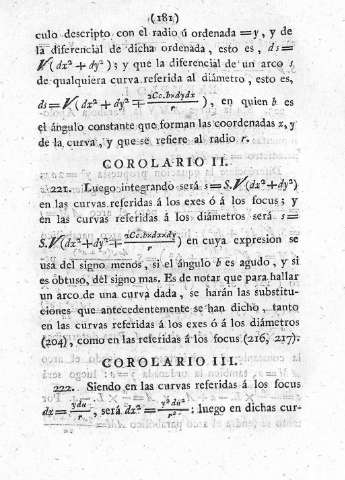 (181)
culo descripto con el radio ú ordenada = y, y de
la diferencial de dicha ordenada, esto es, ds =
√(dx² + dy²); y que la diferencial de un arco s,
de qualquiera curva referida al diámetro, esto es,
ds = √(dx² + dy² ∓ 2Cc.bxdydx/r), en quien b es
el ángulo constante que forman las coordenadas x, y
de la curva, y que se refiere al radio r.
COROLARIO II.
221. Luego integrando será s = S.√(dx²+dy²)
en las curvas referidas á los exes ó á los focus; y
en las curvas referidas á los diámetros será s =
S.√(dx²+dy²∓ 2Cc.bxdxxdy/r) en cuya expresion se
usa del signo menos, si el ángulo b es agudo, y si
es obtuso, del signo mas. Es de notar que para hallar
un arco de una curva dada, se harán las substitu-
ciones que antecedentemente se han dicho, tanto
en las curvas referidas á los exes ó á los diámetros
(204), como en las referidas á los focus (216, 217).
COROLARIO III.
222. Siendo en las curvas referidas á los focus
dx = ydu/r, será dx² = y²du²/r²: luego en dichas cur-